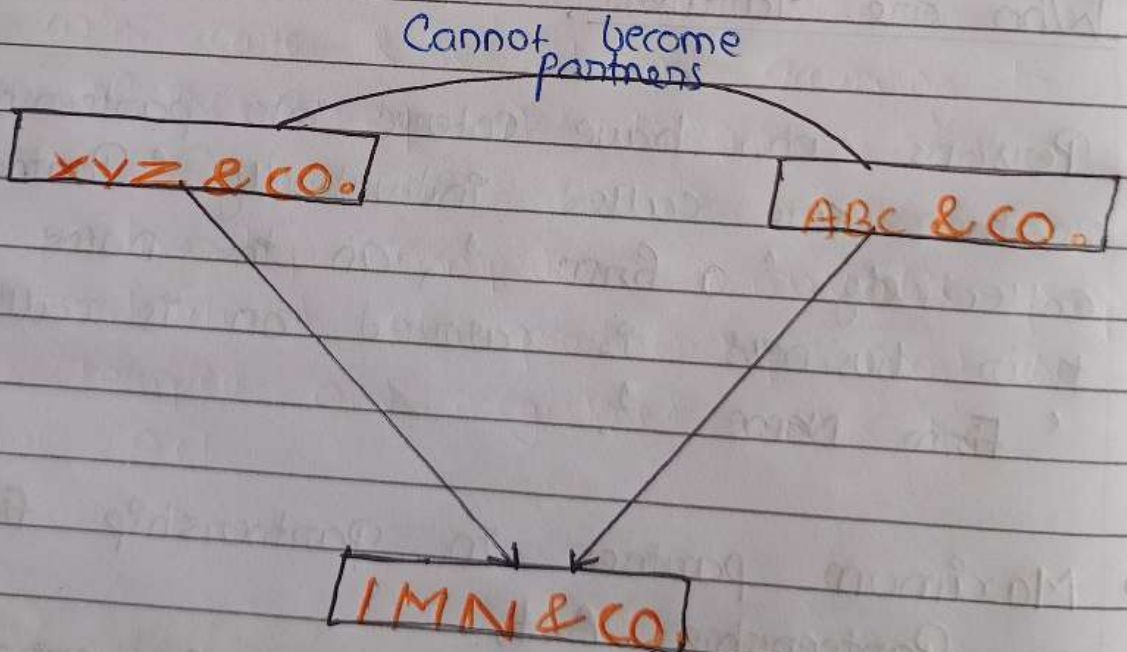 Cannot become
partners
XYZ & CO.
ABC & CO.
LMN & CO.